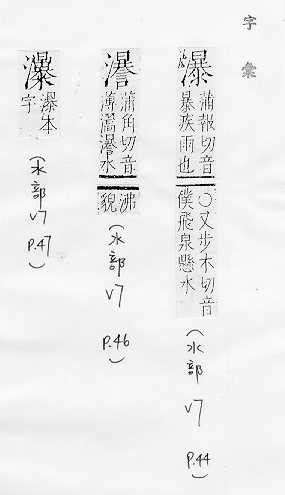 字彙
瀑
蒲報切音
暴疾雨也
〇又步木切音
僕飛泉懸水
(水部 V7 P.44)
蒲角切音
薄水
沸
貌
(水部 V7 P.46)
瀑本
字
(水部 V7 P.47)